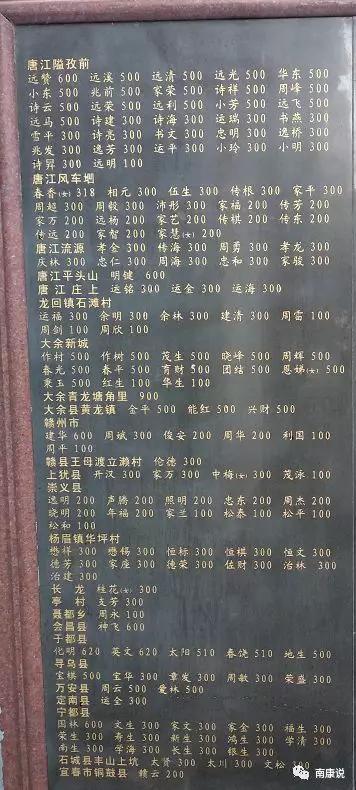 唐江隘孜前
远赞 600 远溪 500 远清 500 远光 500 华东 500
小东 500 兆前 500 家荣 500 诗祥 500 周峰 500
诗云 500 远荣 500 远利 500 小芳 500 远飞 500
远马 500 诗建 300 诗海 300 运瑞 300 书燕 300
雪平 300 诗亮 300 书文 300 忠明 300 逸桥 300
兆发 300 逸芳 300 运平 300 小玲 300 小明 300
诗昇 300 远明 100
唐江风车垇
春香(女) 318 相元 300 伍生 300 传根 300 家平 300
周超 300 周毅 300 沛彤 300 家福 200 传芳 200
家万 200 远杨 200 家艺 200 传棋 200 传东 200
传远 200 家智 200 家慧(女) 200
唐江流源 孝金 300 传海 300 周勇 300 孝龙 300
庆林 300 忠仁 300 周海 300 忠和 300 家骏 300
唐江平头山 明键 600
唐江庄上 运铭 300 运金 300 运海 300
龙回镇石滩村
运福 300 余明 300 余林 300 建清 300 周雷 100
周剑 100 周欣 100
大余新城
作村 500 作树 500 茂生 500 晓峰 500 周辉 500
春光 500 春平 500 育财 500 团结 500 恩娣(女) 500
秉玉 500 红生 100 华生 100
大余青龙塘角里 900
大余县黄龙镇 金平 500 能红 500 兴财 500
赣州市
建华 600 周斌 300 俊安 200 周华 200 利国 100
周平 100
赣县王母渡立濑村 伦德 300
上犹县 开汉 300 家万 300 中梅(女) 300 茂泳 100
崇义县
逸明 200 声腾 200 照明 200 忠东 200 周杰 200
晓明 200 年福 200 家兰 100 松泰 100 松平 100
松和 100
杨眉镇华坪村
懋祥 300 懋锡 300 恒标 300 恒棋 300 恒文 300
德芳 300 家座 300 德荣 300 佐财 300 治林 300
治建 300
长龙 桂花(女) 300
亭村 支芳 300
聂都乡 周永 100
会昌县 神飞 600
于都县
化明 620 英文 620 太阳 510 春饶 510 地生 500
寻乌县
宝棋 500 宝华 300 章发 300 周敏 300 荣盛 300
万安县 周云 500 爱林 500
定南县 运全 300
宁都县
国林 600 文生 300 家文 300 家金 300 福生 300
荣生 300 寿生 300 新生 300 鸿生 300 学清 300
南生 300 学海 300 长生 300 银生 300
石城县丰山上坑 太贤 300 太川 300 文松
宜春市铜鼓县 赣云 200
南康说